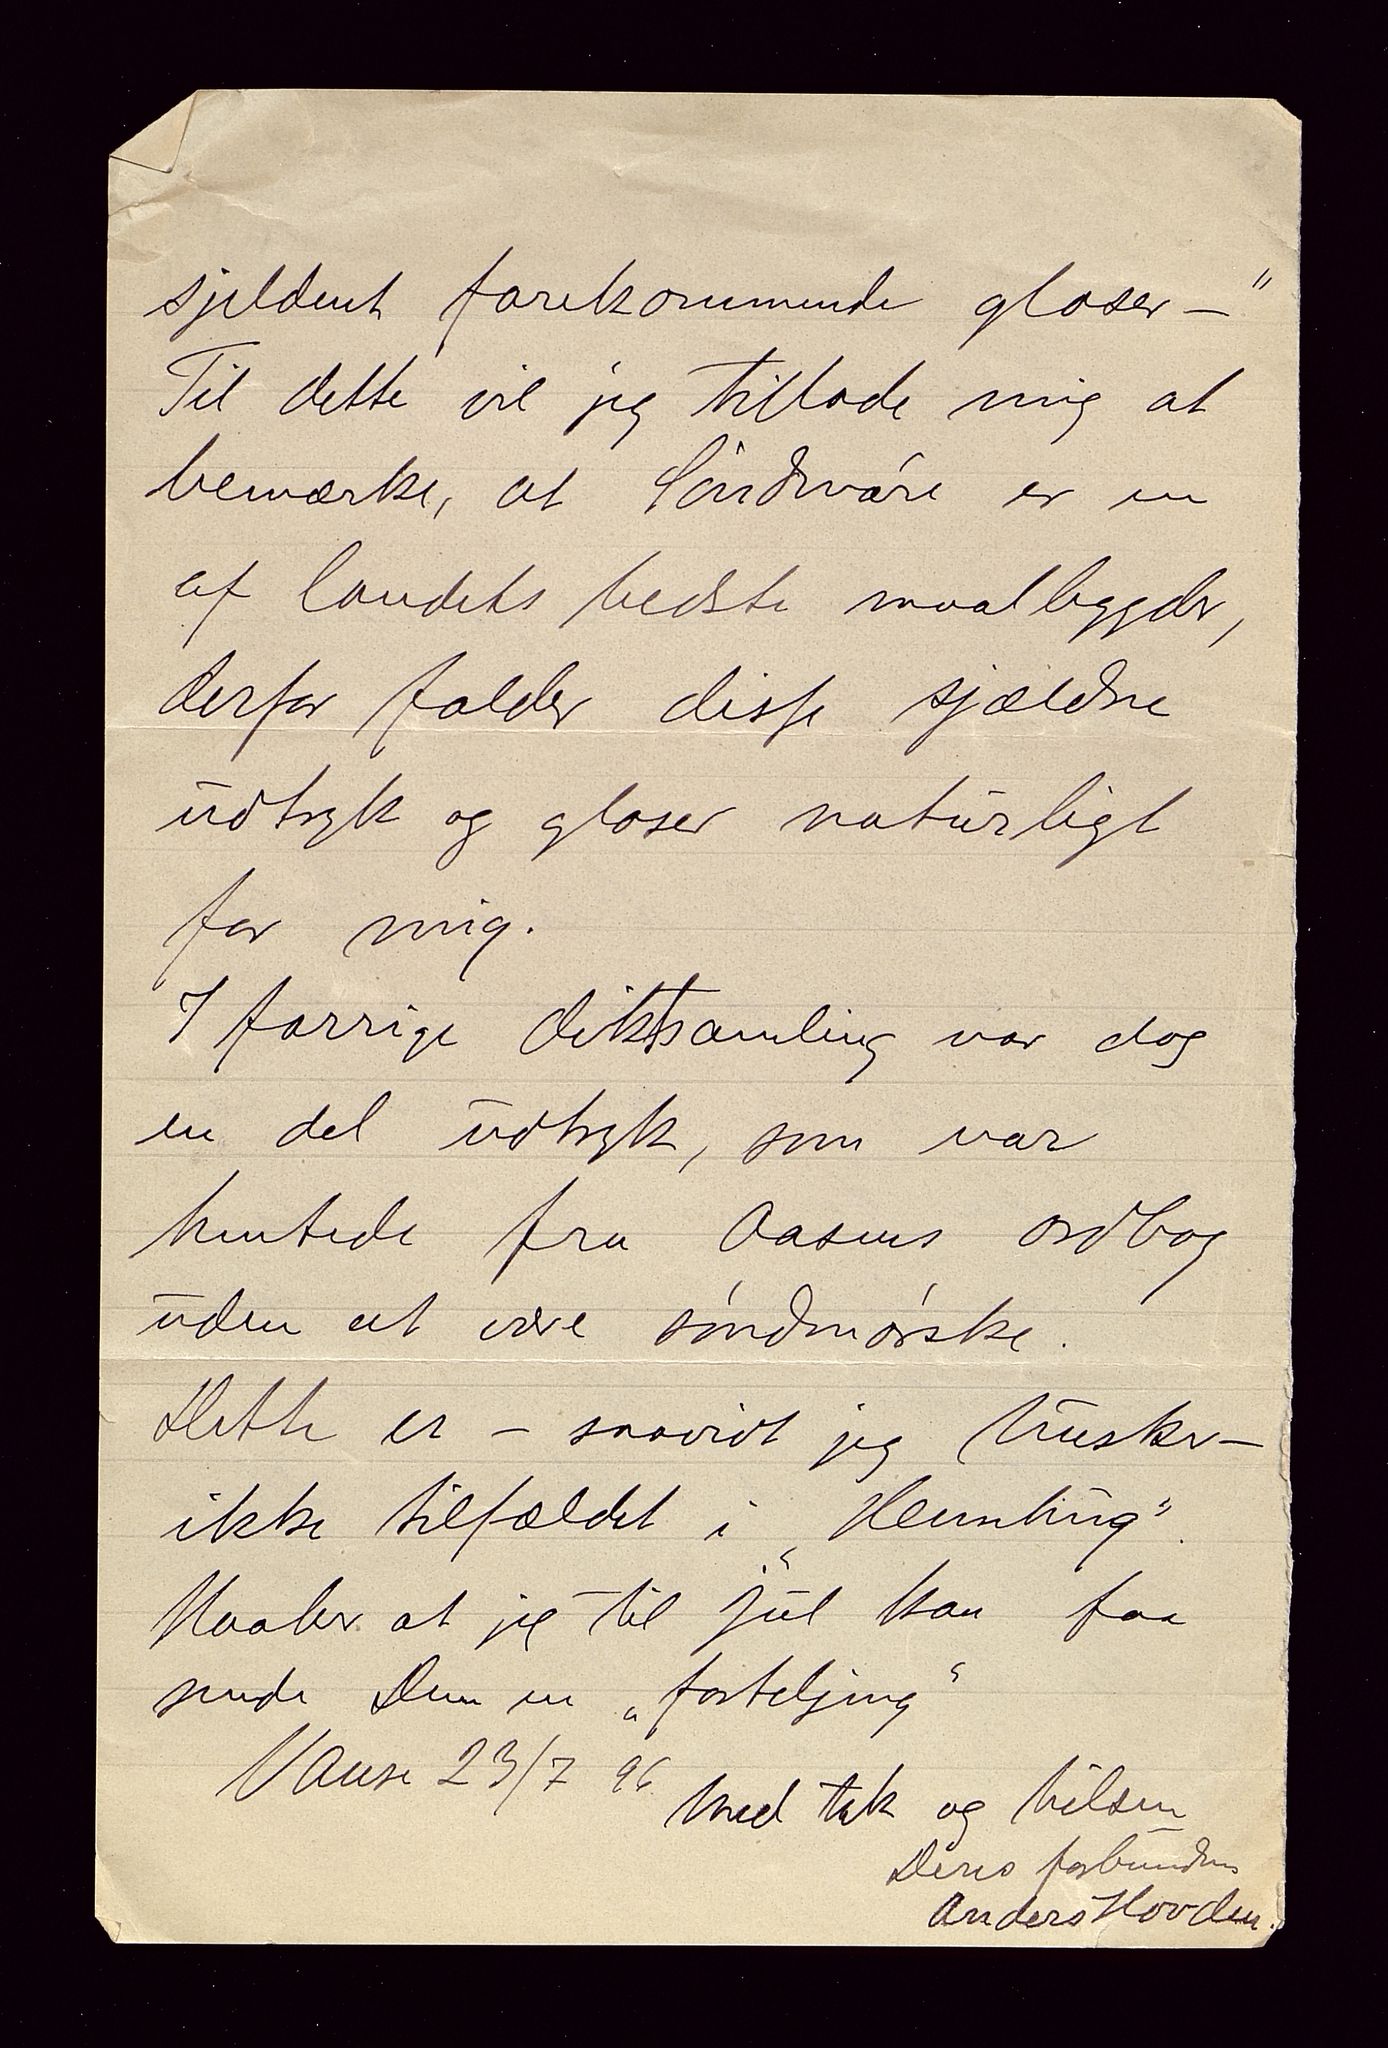 sjeldent forekommende gloser —"
Til dette vil jeg tillade mig at
bemærke, at Söndmöre er en
af landets bedste maalbygder,
derfor falder disse sjældne
udtryk og gloser naturligt
for mig.
I forrige diktsamling var dog
en del udtryk, som var
hentede fra Aasens ordbog
uden at være söndmörske.
Dette er – saavidt jeg husker –
ikke tilfældet i „Hemhug".
Haaber at jeg til jul kan faa
sende Dem en „forteljing"
23/7 96
Med tak og hilsen
Deres forbundne
Anders Hovden.